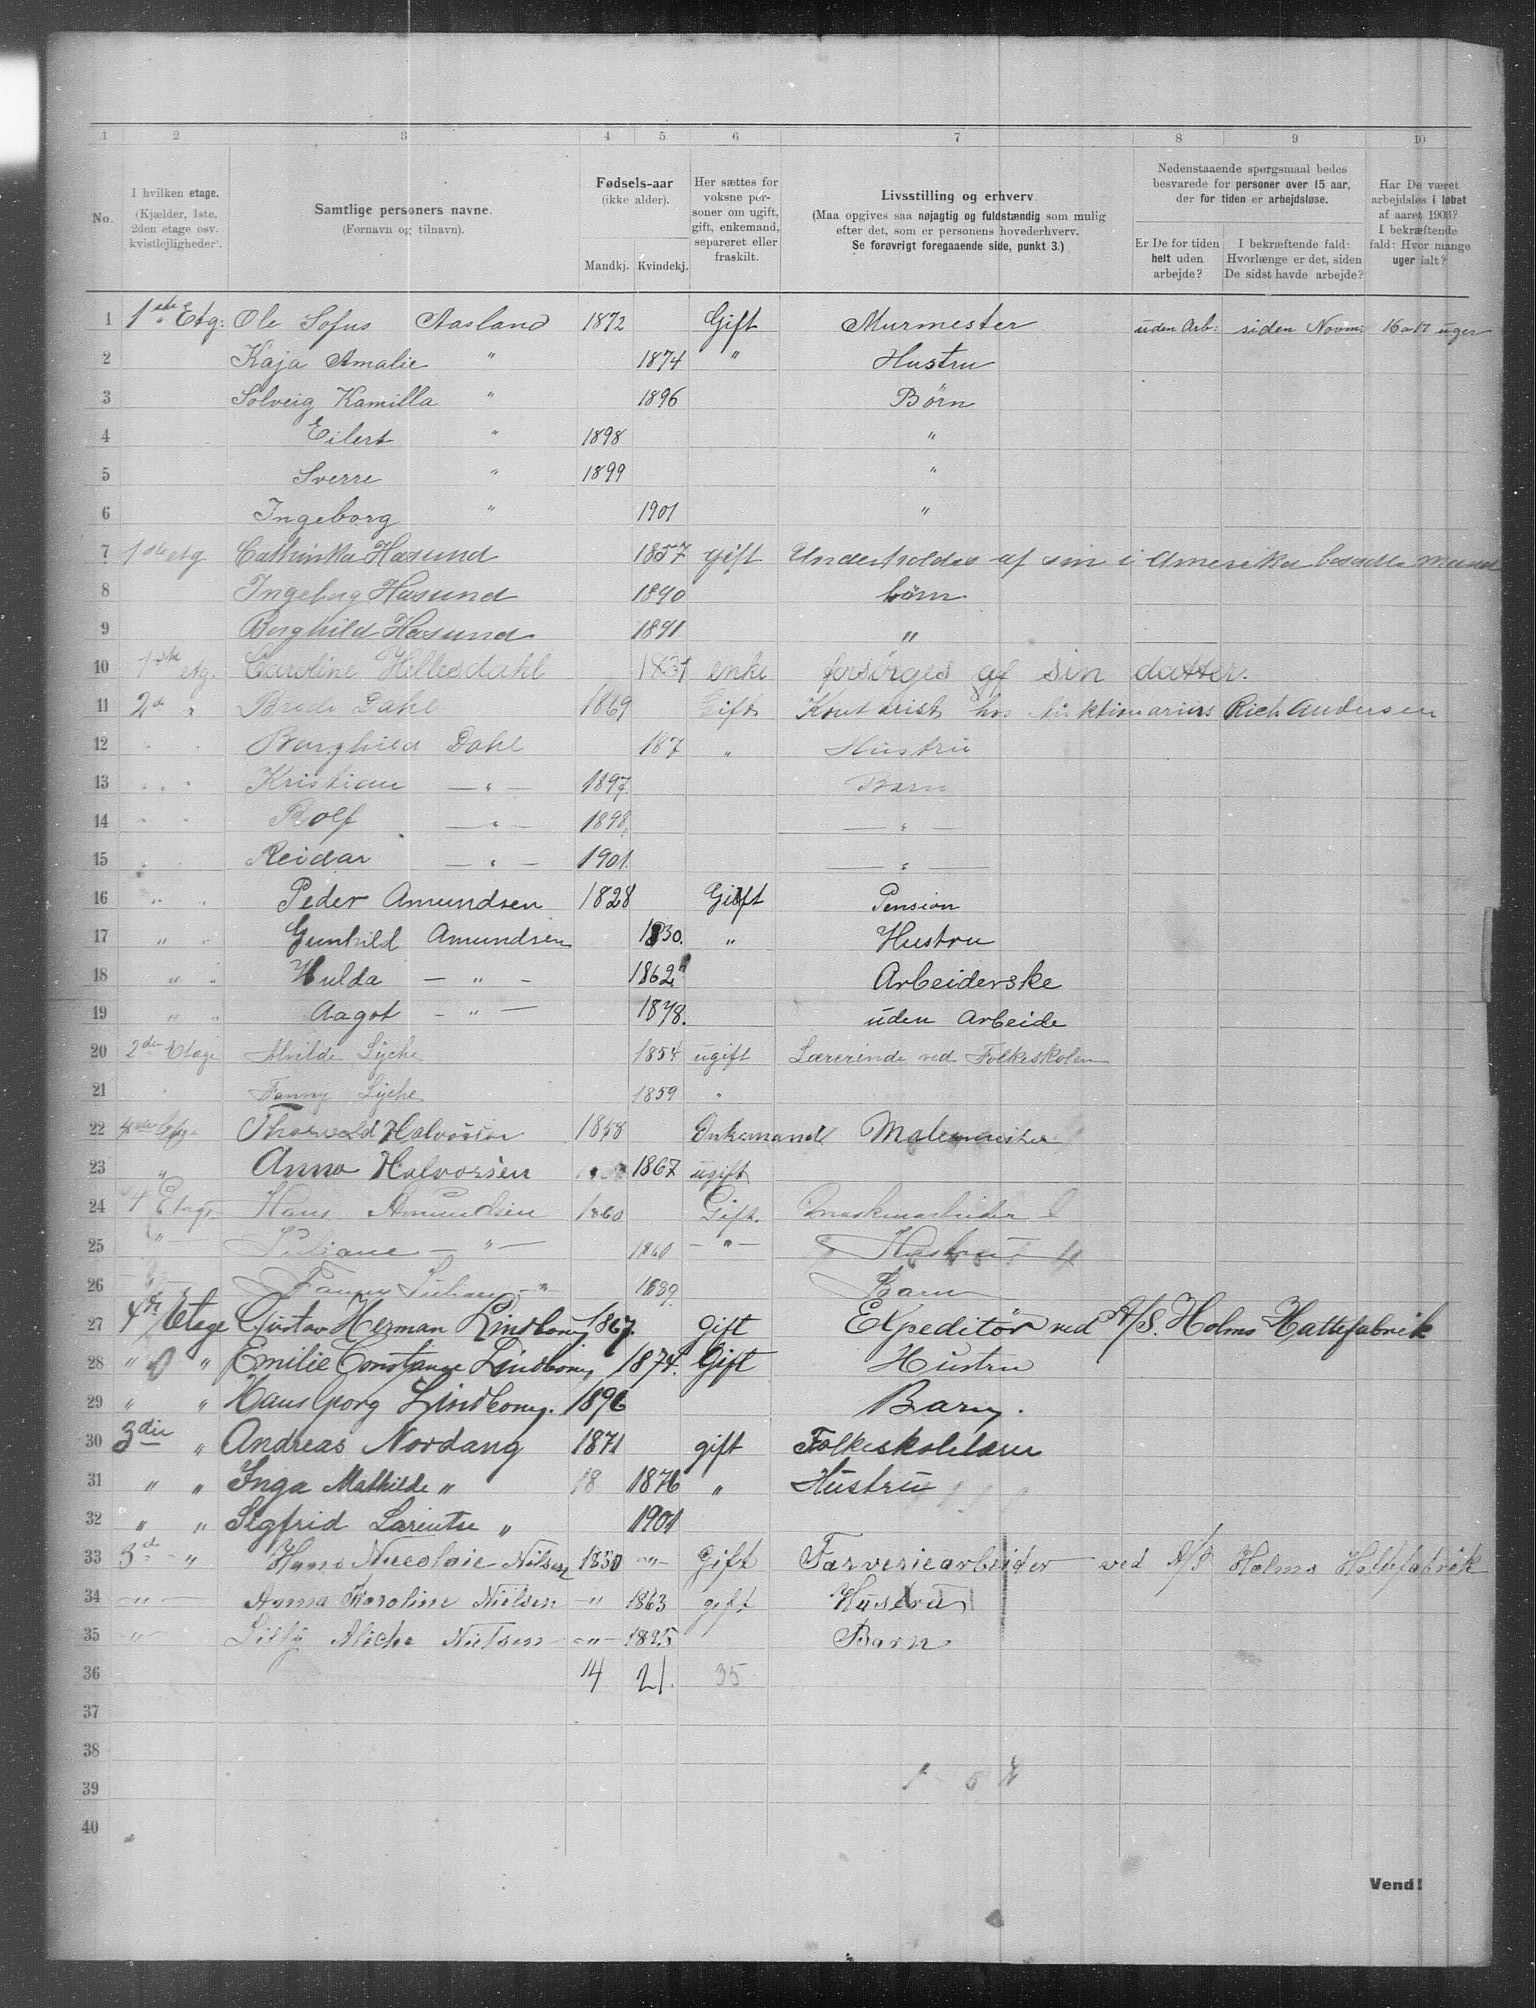 1 2 3 4 5 6 7 8 9 10
No.
I hvilken etage. (Kjælder, 1ste, 2den etage osv. kvistlejligheder).
Samtlige personers navne. (Fornavn og tilnavn).
Fødsels-aar (ikke alder). Mandkj. Kvindekj.
Her sættes for voksne personer om ugift, gift, enkemand, separeret eller fraskilt.
Livsstilling og erhverv. (Maa opgives saa nøjagtig og fuldstændig som mulig efter det, som er personens hovederhverv. Se forøvrigt foregaaende side, punkt 3.)
Nedenstaaende spørgsmaal bedes besvarede for personer over 15 aar, der for tiden er arbejdsløse.
Er De for tiden helt uden arbejde?
I bekræftende fald: Hvorlænge er det, siden De sidst havde arbejde?
Har De været arbejdsløs i løbet af aaret 1903? I bekræftende fald: Hvor mange uger ialt?
1 1ste Etg: Ole Sofus Aasland 1872 Gift Murmester uden Arb: siden Novm: 16 a 17 uger
2 Kaja Amalie " 1874 " Hustru
3 Solveig Kamilla " 1896 Børn
4 Eilert " 1898 "
5 Sverre " 1899 "
6 Ingeborg " 1901 "
7 1ste etg Cathinka Hasund 1857 gift Underholdes af sin i Amerika bosatte mand
8 Ingeborg Hasund 1890 børn
9 Borghild Hasund 1891 "
10 1ste etg. Caroline Hellesdahl 1831 enke forsørges af sin datter.
11 2d " Brede Dahl 1869 Gift Kontorist hos Auktionarius Rich Andersen
12 " " Borghild Dahl 187 " Hustru
13 " " Kristian — " — 1897. Barn
14 " " Rolf — " — 1898. — " —
15 " " Reidar — " — 1901. — " —
16 " " Peder Amundsen 1828 Gift Pension
17 " " Gunhild Amundsen 1830. " Hustru
18 " " Hulda — " — 1862 Arbeiderske
19 " " Aagot — " — 1878. uden Arbeide
20 2den Etage Alvilde Lyche 1854 ugift Lærerinde ved Folkeskolen
21 " Fanny Lyche 1859 "
22 4de Etge Thorvald Halvorsen 1858 Enkemand Malermester
23 " Anna Halvorsen 1867 ugift
24 4 Etage Hans Amundsen 1860 Gift. Maskinarbeider
25 " Juliane — " — 1860 — " — Hustru
26 " Fanny Juliane — " 1889. Barn
27 4de Etage Gustav Herman Lindborg 1867. Gift Expeditør ved A/S. Holms Hattefabrik
28 " " Emilie Constanse Lindborg 1874. Gift Hustru
29 " " Hans Georg Lindborg. 1896 Barn.
30 3die " Andreas Nordang 1871 gift Folkeskolelærer
31 " " Inga Mathilde " 18 1876 " Hustru
32 " " Sigfrid Larentse " 1901
33 3d — " Hans Nicolaie Nilsen 1850 — " — Gift Farveriearbeider ved A/S Holms Hattefabrik
34 — " — Anna Karoline Nielsen — " 1863 gift Hustru
35 — " — Lilly Aliche Nielsen — " — 1895 Barn
36 14 21. 35
37
38
39
40
Vend!